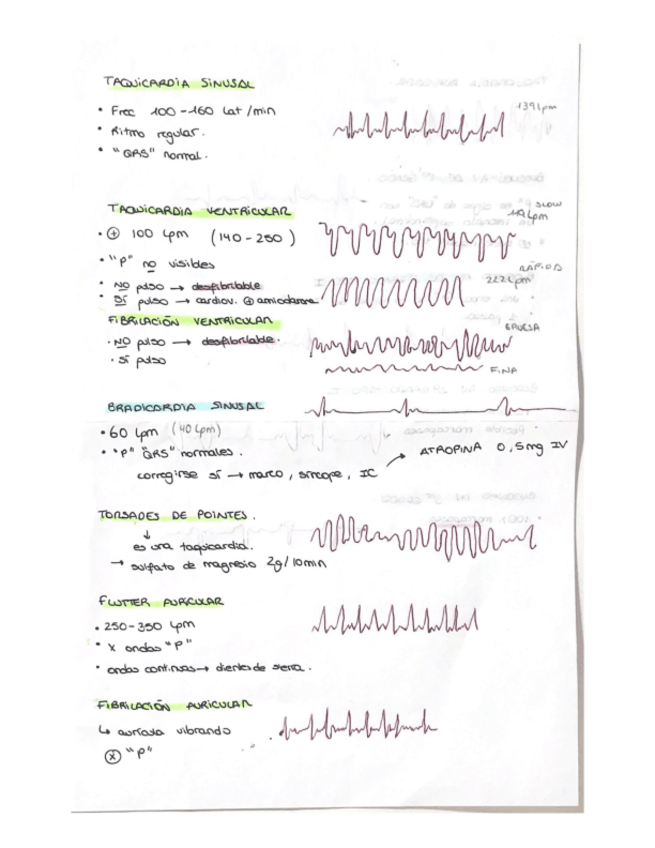 TAQUICARDIA SINUSAL
• Frec 100-160 Lat/min
139 Lpm
• Ritmo regular.
• "QRS" normal.
TAQUICARDIA VENTRICULAR
SLOW
Lpm
• ⊕ 100 Lpm (140-250)
• "P" no visibles
RÁPIDA
• NO pulso → desfibrilable
222 Lpm
• SÍ pulso → cardiov. ⊕ amiodarona
FIBRILACIÓN VENTRICULAR
GRUESA
• NO pulso → desfibrilable.
• SÍ pulso
FINA
BRADICARDIA SINUSAL
• 60 Lpm (40 Lpm)
• "P" "QRS" normales.
ATROPINA 0,5mg IV
corregirse sí → mareo, síncope, IC
TORSADES DE POINTES.
↓
es una taquicardia.
→ sulfato de magnesio 2g/10min
FLUTTER AURICULAR
• 250-350 Lpm
• X ondas "P"
• ondas continuas → dientes de sierra.
FIBRILACIÓN AURICULAR
↳ aurícula vibrando
ⓧ "P"